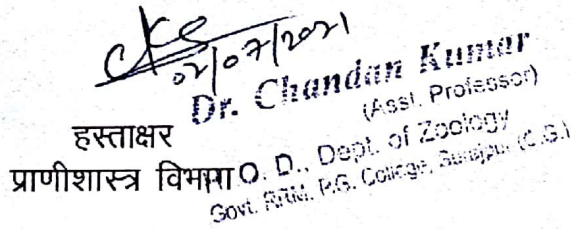 02/07/2021
Dr. Chandan Kumar
(Asst. Professor)
हस्ताक्षर
प्राणीशास्त्र विभाग O. D., Dept. of Zoology
Govt. P.G. College, Surajpur (C.G.)